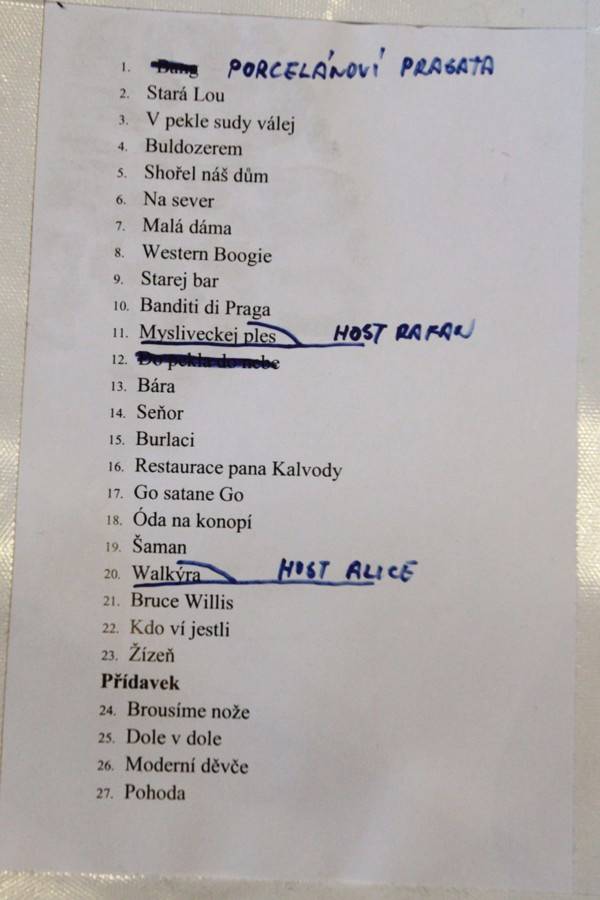 1. Bang PORCELÁNOVÍ PRASATA
2. Stará Lou
3. V pekle sudy válej
4. Buldozerem
5. Shořel náš dům
6. Na sever
7. Malá dáma
8. Western Boogie
9. Starej bar
10. Banditi di Praga
11. Mysliveckej ples HOST RAFAN
12. Do pekla do nebe
13. Bára
14. Seňor
15. Burlaci
16. Restaurace pana Kalvody
17. Go satane Go
18. Óda na konopí
19. Šaman
20. Walkýra HOST ALICE
21. Bruce Willis
22. Kdo ví jestli
23. Žízeň
Přídavek
24. Brousíme nože
25. Dole v dole
26. Moderní děvče
27. Pohoda